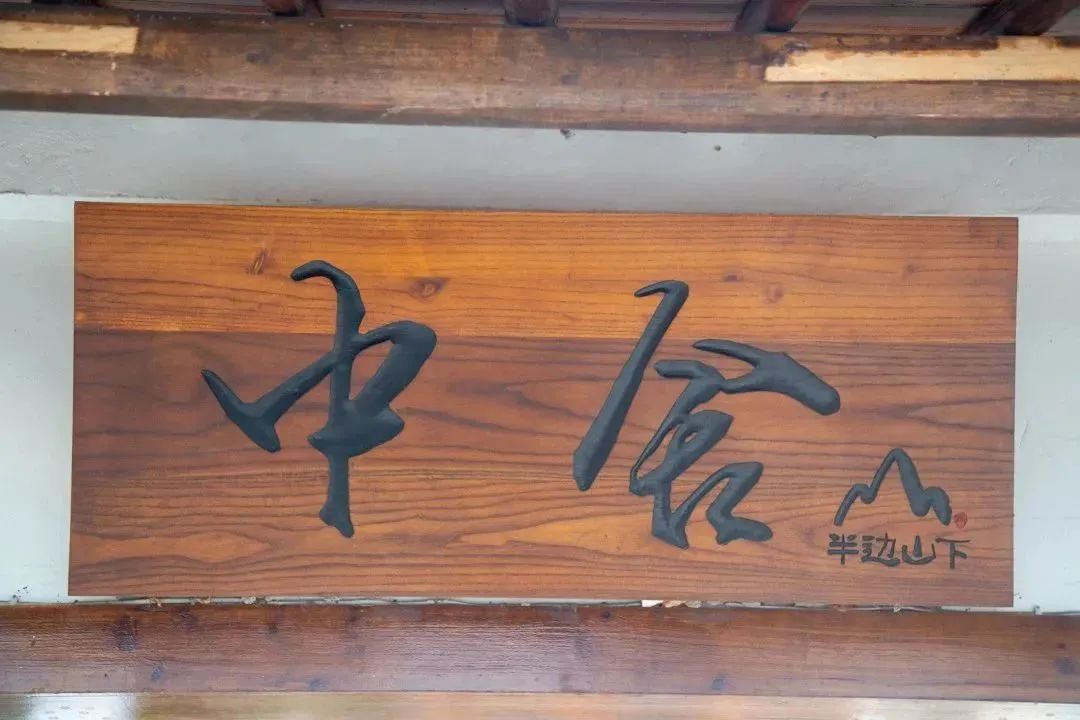 中舍
半边山下